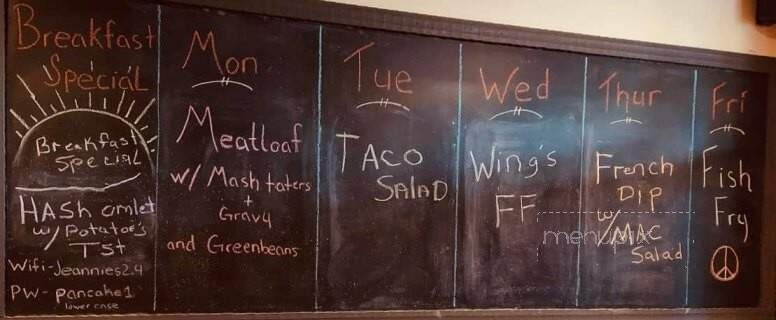 Breakfast
Special
Breakfast
Special
HASH omlet
w/ Potatoe's
TST
Wifi-Jeannies2.4
PW- pancake1
lower case
Mon
Meatloaf
w/ Mash taters
+
Gravy
and Greenbeans
Tue
TACO
SALAD
Wed
Wing's
FF
Thur
French
DIP
w/ MAC
Salad
Fri
Fish
Fry
menupix